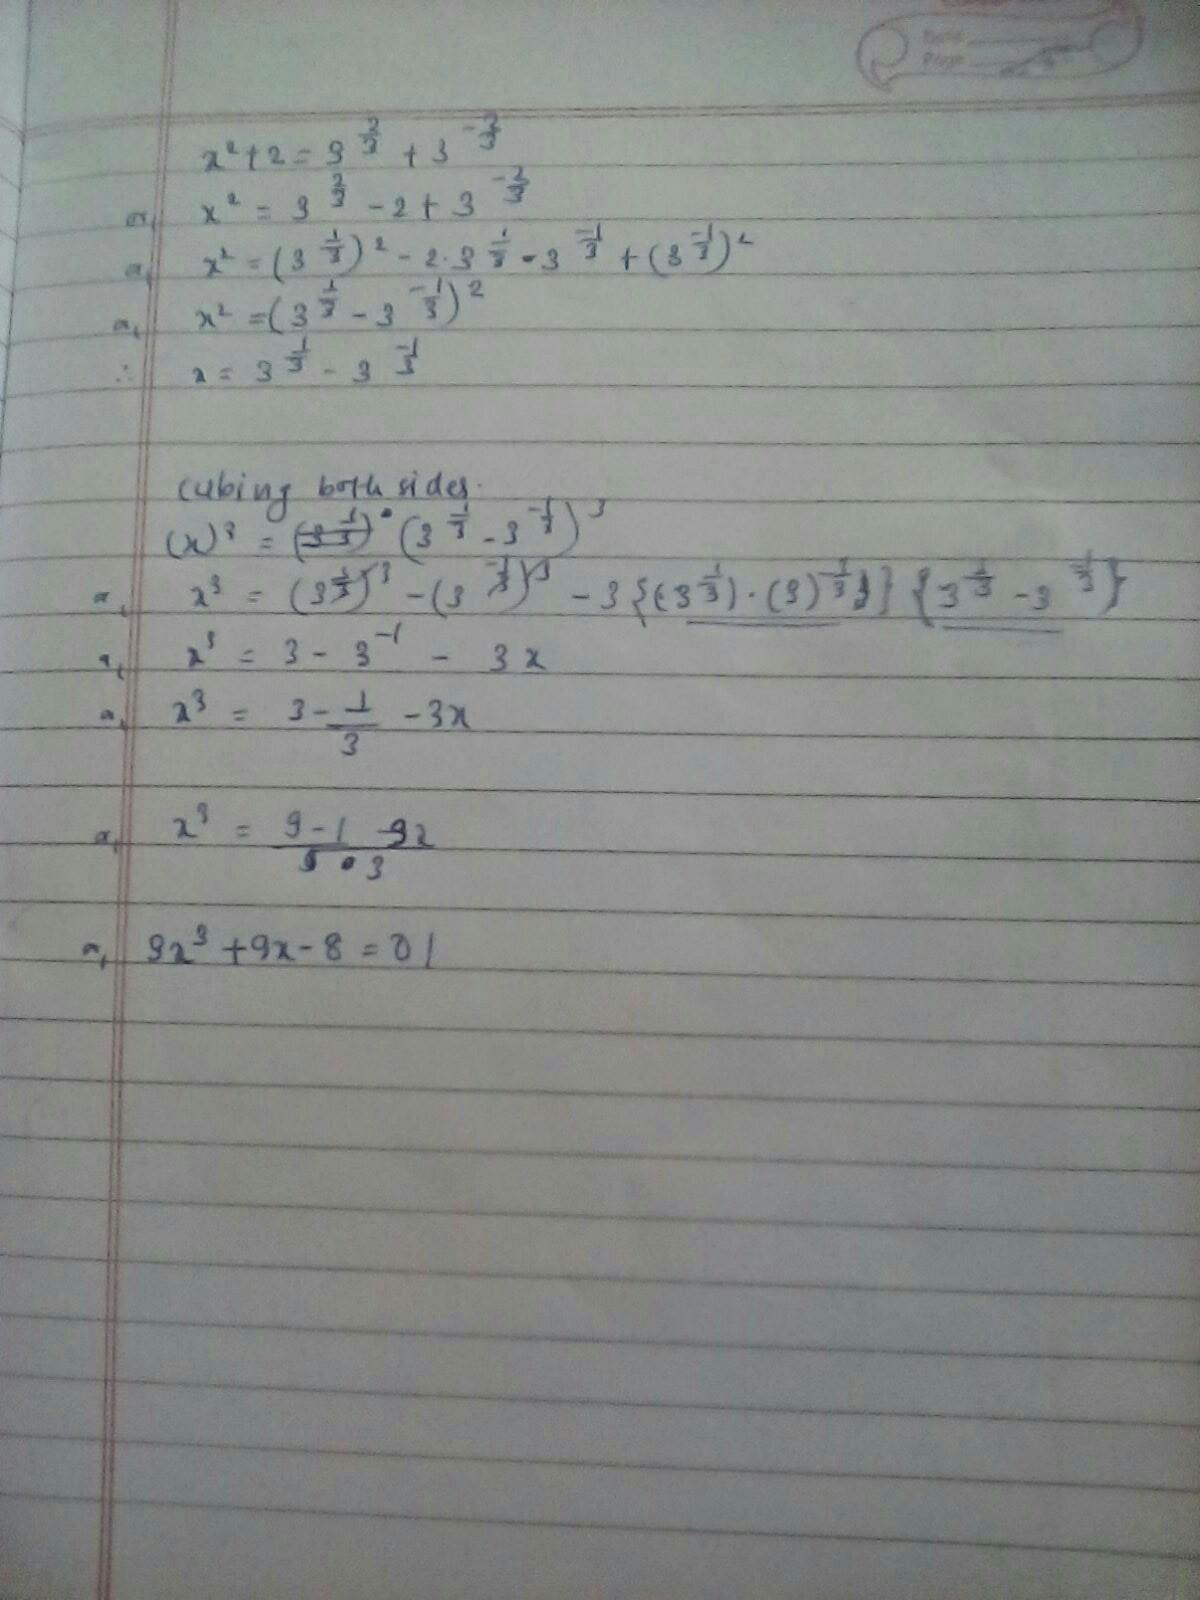 Date
Page
x² + 2 = 3^(2/3) + 3^(-2/3)
or, x² = 3^(2/3) - 2 + 3^(-2/3)
or, x² = (3^(1/3))² - 2·3^(1/3)·3^(-1/3) + (3^(-1/3))²
or, x² = (3^(1/3) - 3^(-1/3))²
∴ x = 3^(1/3) - 3^(-1/3)
Cubing both sides.
(x)³ = (3^(1/3) - 3^(-1/3))³
or, x³ = (3^(1/3))³ - (3^(-1/3))³ - 3{(3^(1/3))·(3)^(-1/3)} {3^(1/3) - 3^(-1/3)}
or, x³ = 3 - 3^(-1) - 3x
or, x³ = 3 - 1/3 - 3x
or, x³ = (9 - 1 - 9x)/3
or, 3x³ + 9x - 8 = 0